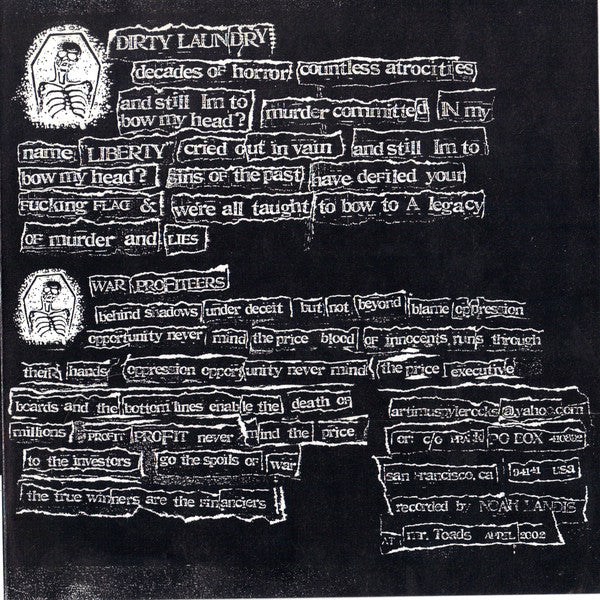 DIRTY LAUNDRY
decades of horror countless atrocities
and still Im to
bow my head? murder committed IN my
name "LIBERTY" cried out in vain and still Im to
bow my head? sins of the past have defiled your
FUCKING FLAG & we're all taught to bow to A legacy
OF murder and LIES
WAR PROFITEERS
behind shadows under deceit but not beyond blame oppression
opportunity never mind the price blood OF innocents runs through
their hands oppression opportunity never mind the price executive
boards and the bottom lines enable the death OF
millions PROFIT PROFIT never mind the price
to the investors go the spoils OF war
the true winners are the financiers
artimuspylerocks@yahoo.com
or: c/o PO BOX 410802
san Francisco, ca 94141 USA
recorded by NOAH LANDIS
AT mr. Toads APRIL 2002